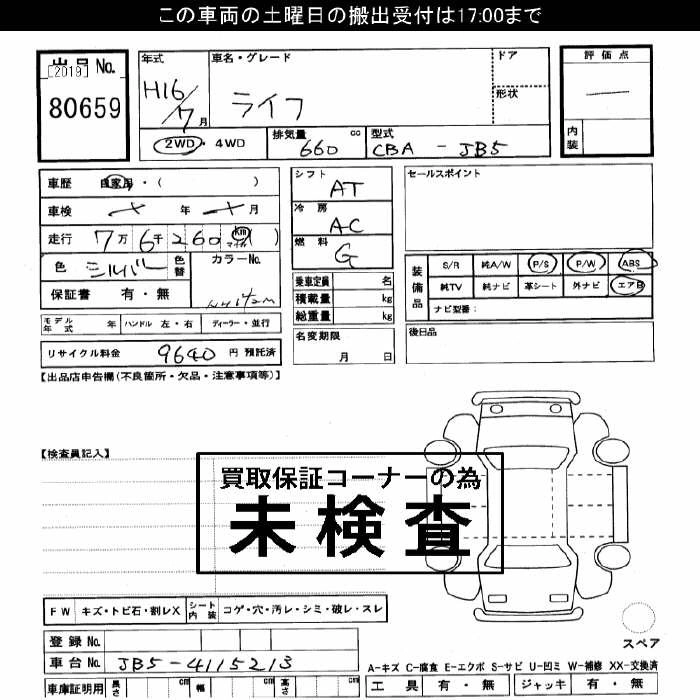 この車両の土曜日の搬出受付は17:00まで
出品No. [2019] 80659
年式 H16/7月
車名・グレード ライフ
ドア
形状
評価点
内装
2WD・4WD 排気量 660 cc 型式 CBA - JB5
車歴 自家用・( )
車検 年 月
走行 7万6千260 km マイル ( )
色 シルバー 色替 カラーNo.
保証書 有・無
モデル年式 年 ハンドル 左・右 ディーラー・並行
リサイクル料金 9640 円 預託済
シフト AT
冷房 AC
燃料 G
乗車定員 名
積載量 kg
総重量 kg
名変期限 月 日
セールスポイント
装備品 S/R 純A/W P/S P/W ABS
純TV 純ナビ 革シート 外ナビ エアB
ナビ型番:
後日品
【出品店申告欄(不良箇所・欠品・注意事項等)】
【検査員記入】
買取保証コーナーの為
未検査
FW キズ・トビ石・割レX シート内装 コゲ・穴・汚レ・シミ・破レ・スレ
登録No.
車台No. JB5-4115213
車庫証明用 長さ cm 幅 cm 高さ cm
スペア
A-キズ C-腐食 E-エクボ S-サビ U-凹ミ W-補修 XX-交換済
工具 有・無 ジャッキ 有・無